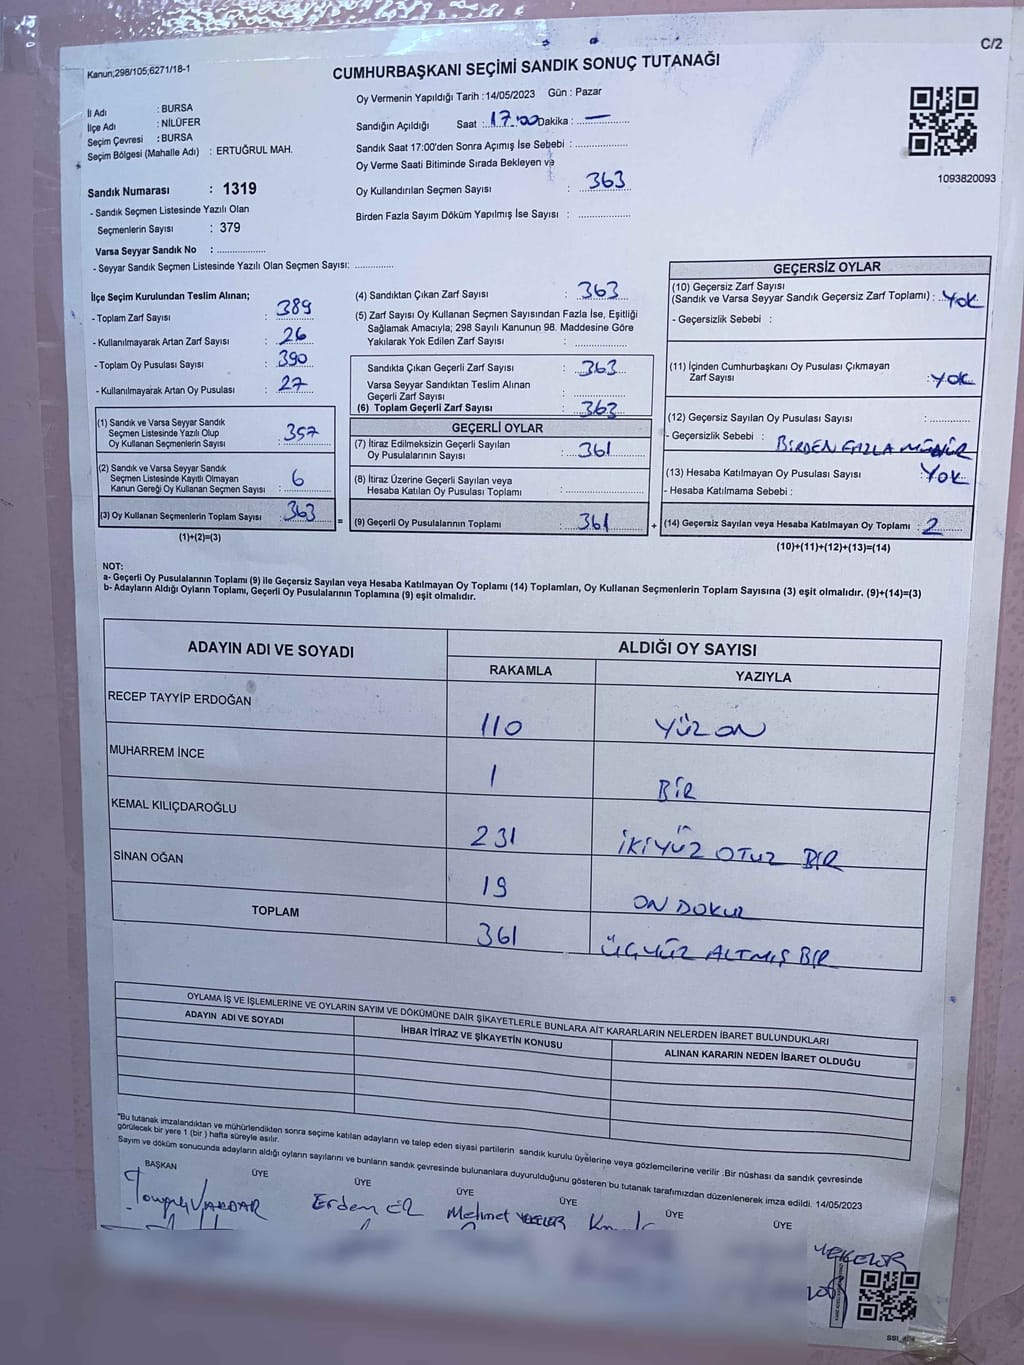 C/2
Kanun;298/105;6271/18-1
CUMHURBAŞKANI SEÇİMİ SANDIK SONUÇ TUTANAĞI
İl Adı : BURSA
İlçe Adı : NİLÜFER
Seçim Çevresi : BURSA
Seçim Bölgesi (Mahalle Adı) : ERTUĞRUL MAH.
Oy Vermenin Yapıldığı Tarih :14/05/2023 Gün : Pazar
Sandığın Açıldığı Saat : 17:00 Dakika : —
Sandık Saat 17:00'den Sonra Açımış İse Sebebi :
Oy Verme Saati Bitiminde Sırada Bekleyen ve
Oy Kullandırılan Seçmen Sayısı : 363
Birden Fazla Sayım Döküm Yapılmış İse Sayısı :
1093820093
Sandık Numarası : 1319
- Sandık Seçmen Listesinde Yazılı Olan
Seçmenlerin Sayısı : 379
Varsa Seyyar Sandık No :
- Seyyar Sandık Seçmen Listesinde Yazılı Olan Seçmen Sayısı:
İlçe Seçim Kurulundan Teslim Alınan;
- Toplam Zarf Sayısı : 389
- Kullanılmayarak Artan Zarf Sayısı : 26
- Toplam Oy Pusulası Sayısı : 390
- Kullanılmayarak Artan Oy Pusulası : 27
(1) Sandık ve Varsa Seyyar Sandık
Seçmen Listesinde Yazılı Olup
Oy Kullanan Seçmenlerin Sayısı : 357
(2) Sandık ve Varsa Seyyar Sandık
Seçmen Listesinde Kayıtlı Olmayan
Kanun Gereği Oy Kullanan Seçmen Sayısı : 6
(3) Oy Kullanan Seçmenlerin Toplam Sayısı : 363
(1)+(2)=(3)
(4) Sandıktan Çıkan Zarf Sayısı : 363
(5) Zarf Sayısı Oy Kullanan Seçmen Sayısından Fazla İse, Eşitliği
Sağlamak Amacıyla; 298 Sayılı Kanunun 98. Maddesine Göre
Yakılarak Yok Edilen Zarf Sayısı :
Sandıkta Çıkan Geçerli Zarf Sayısı : 363
Varsa Seyyar Sandıktan Teslim Alınan
Geçerli Zarf Sayısı :
(6) Toplam Geçerli Zarf Sayısı : 363
GEÇERLİ OYLAR
(7) İtiraz Edilmeksizin Geçerli Sayılan
Oy Pusulalarının Sayısı : 361
(8) İtiraz Üzerine Geçerli Sayılan veya
Hesaba Katılan Oy Pusulası Toplamı :
= (9) Geçerli Oy Pusulalarının Toplamı : 361
GEÇERSİZ OYLAR
(10) Geçersiz Zarf Sayısı
(Sandık ve Varsa Seyyar Sandık Geçersiz Zarf Toplamı) : YOK
- Geçersizlik Sebebi :
(11) İçinden Cumhurbaşkanı Oy Pusulası Çıkmayan
Zarf Sayısı : YOK
(12) Geçersiz Sayılan Oy Pusulası Sayısı :
- Geçersizlik Sebebi : BİRDEN FAZLA MÜHÜR
(13) Hesaba Katılmayan Oy Pusulası Sayısı : YOK
- Hesaba Katılmama Sebebi :
+ (14) Geçersiz Sayılan veya Hesaba Katılmayan Oy Toplamı : 2
(10)+(11)+(12)+(13)=(14)
NOT:
a- Geçerli Oy Pusulalarının Toplamı (9) ile Geçersiz Sayılan veya Hesaba Katılmayan Oy Toplamı (14) Toplamları, Oy Kullanan Seçmenlerin Toplam Sayısına (3) eşit olmalıdır. (9)+(14)=(3)
b- Adayların Aldığı Oyların Toplamı, Geçerli Oy Pusulalarının Toplamına (9) eşit olmalıdır.
ADAYIN ADI VE SOYADI ALDIĞI OY SAYISI
RAKAMLA YAZIYLA
RECEP TAYYİP ERDOĞAN 110 YÜZ ON
MUHARREM İNCE 1 BİR
KEMAL KILIÇDAROĞLU 231 İKİYÜZ OTUZ BİR
SİNAN OĞAN 19 ON DOKUZ
TOPLAM 361 ÜÇYÜZ ALTMIŞ BİR
OYLAMA İŞ VE İŞLEMLERİNE VE OYLARIN SAYIM VE DÖKÜMÜNE DAİR ŞİKAYETLERLE BUNLARA AİT KARARLARIN NELERDEN İBARET BULUNDUKLARI
ADAYIN ADI VE SOYADI İHBAR İTİRAZ VE ŞİKAYETİN KONUSU ALINAN KARARIN NEDEN İBARET OLDUĞU
*Bu tutanak imzalandıktan ve mühürlendikten sonra seçime katılan adayların ve talep eden siyasi partilerin sandık kurulu üyelerine veya gözlemcilerine verilir .Bir nüshası da sandık çevresinde
görülecek bir yere 1 (bir ) hafta süreyle asılır.
Sayım ve döküm sonucunda adayların aldığı oyların sayılarını ve bunların sandık çevresinde bulunanlara duyurulduğunu gösteren bu tutanak tarafımızdan düzenlenerek imza edildi. 14/05/2023
BAŞKAN ÜYE ÜYE ÜYE ÜYE ÜYE ÜYE
VARDAR Erdem Mehmet